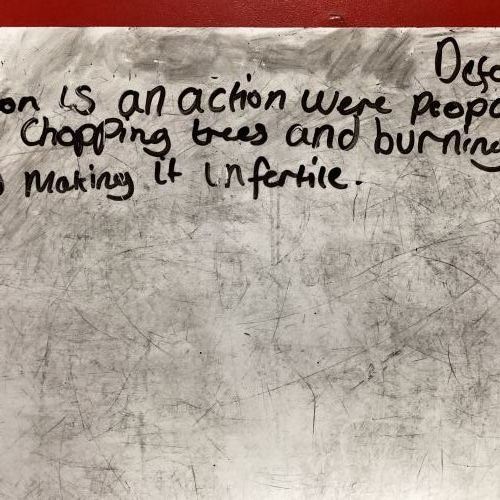 Defo
on is an action were peop
chopping trees and burning
making it infertile.